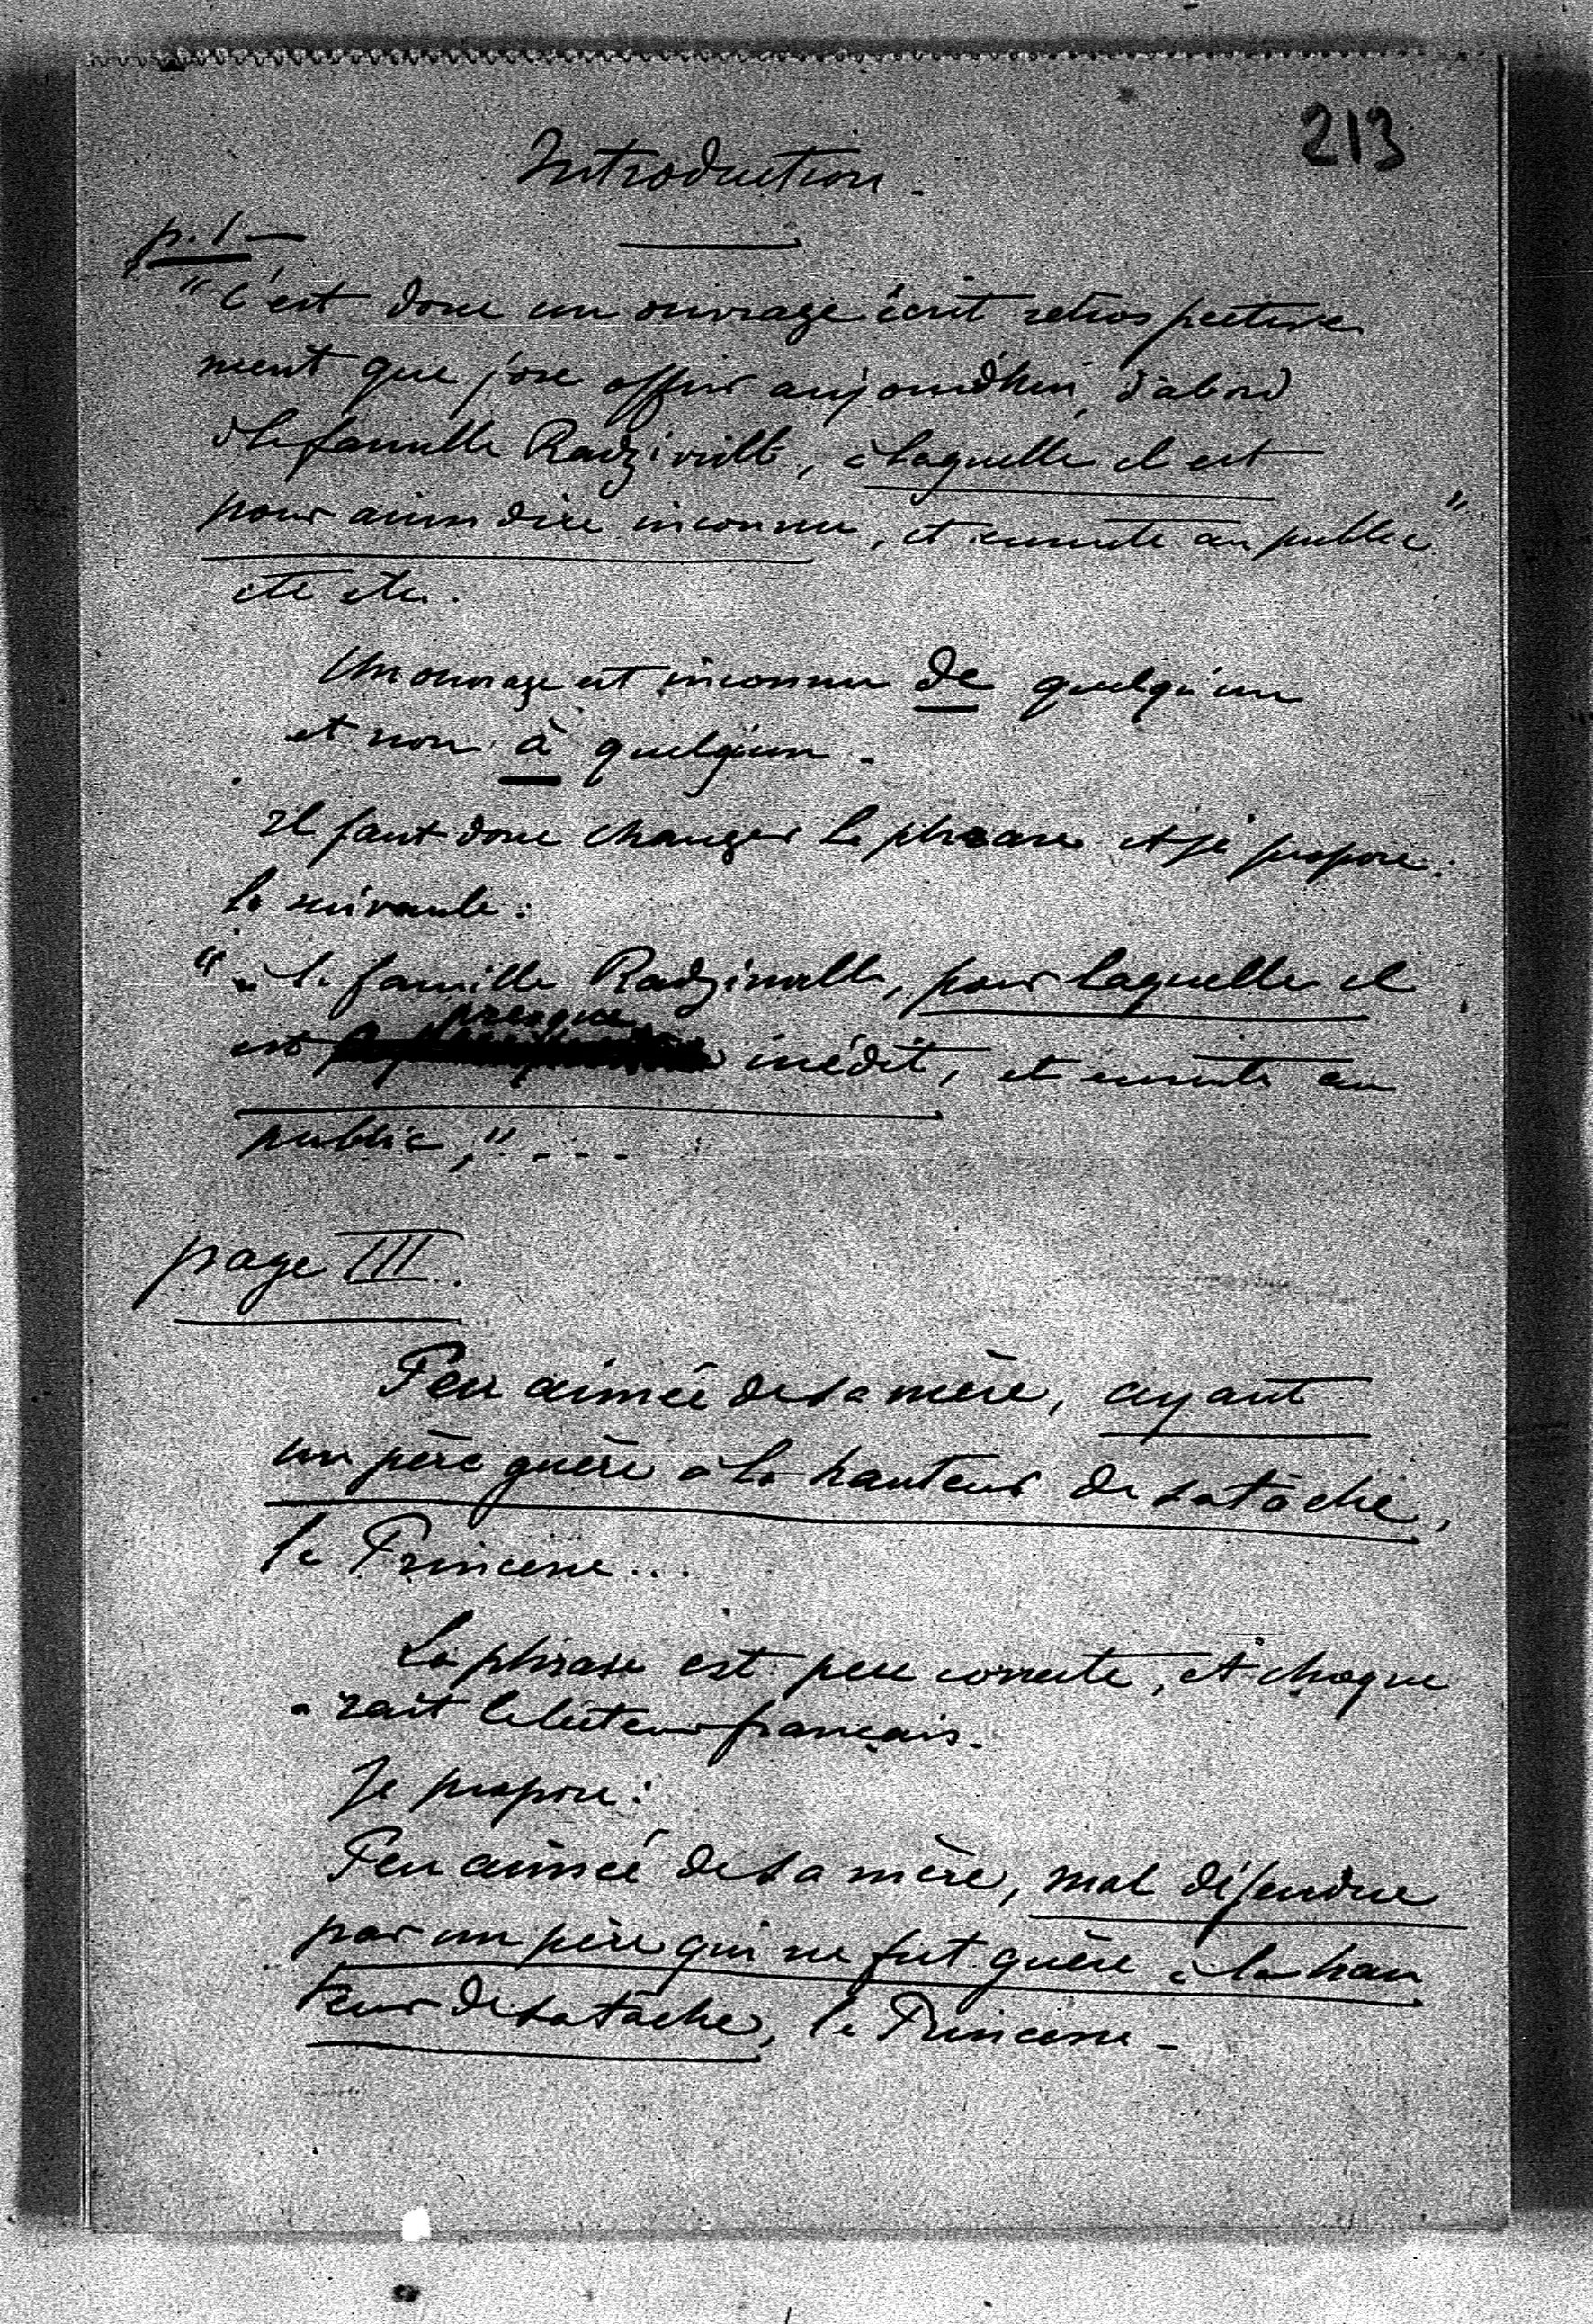 213
Introduction.
p. 1 —
"C'est donc un ouvrage écrit rétrospective
ment que j'ose offrir aujourd'hui, d'abord
à la famille Radziwill, à laquelle il est
pour ainsi dire inconnu, et ensuite au public"
etc etc.
Un ouvrage est inconnu de quelqu'un
et non à quelqu'un.
Il faut donc changer la phrase et je propose
la suivante:
"à la famille Radziwill, pour laquelle il
est presque inédit, et ensuite au
public,"....
page III.
Peu aimée de sa mère, ayant
un père guère à la hauteur de sa tâche,
la Princesse...
La phrase est peu correcte, et choque
rait le lecteur français.
Je propose:
Peu aimée de sa mère, mal défendue
par un père qui ne fut guère à la hau
teur de sa tâche, la Princesse -